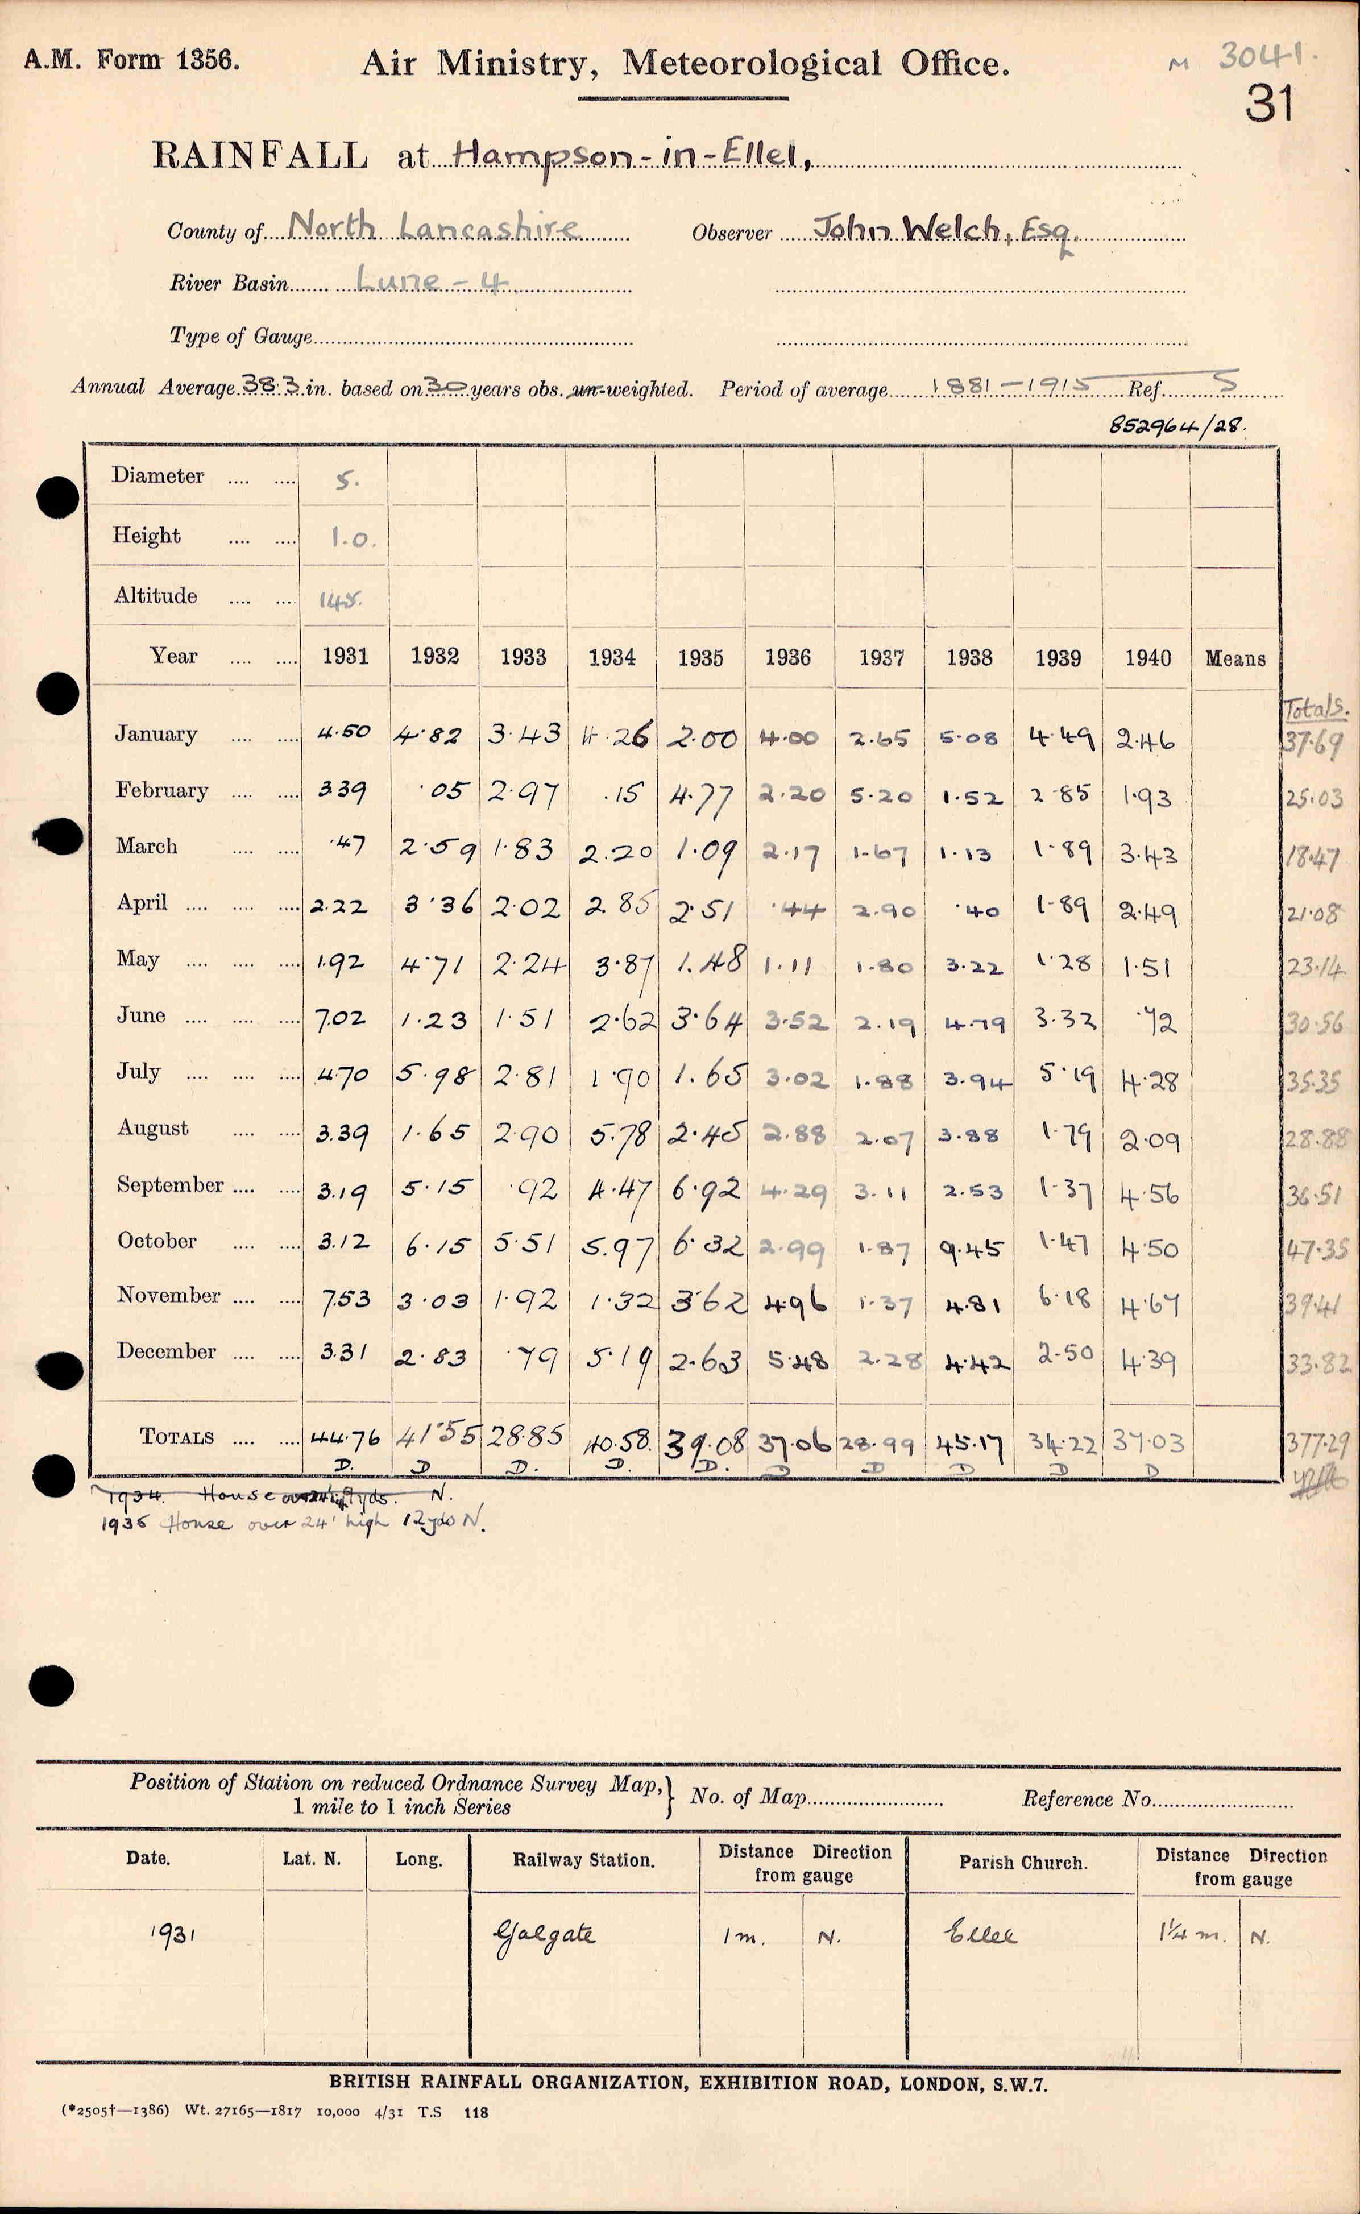 A.M. Form 1356.
Air Ministry, Meteorological Office.
M 3041.
31
RAINFALL at Hampson-in-Ellel,
County of North Lancashire Observer John Welch, Esq.
River Basin Lune - 4
Type of Gauge
Annual Average 38.3 in. based on 30 years obs. un-weighted. Period of average 1881-1915 Ref. 5
852964/28.
Diameter 5.
Height 1.0.
Altitude 145.
Year 1931 1932 1933 1934 1935 1936 1937 1938 1939 1940 Means
Totals.
January 4.50 4.82 3.43 4.26 2.00 4.00 2.65 5.08 4.49 2.46 37.69
February 3.39 .05 2.97 .15 4.77 2.20 5.20 1.52 2.85 1.93 25.03
March .47 2.59 1.83 2.20 1.09 2.17 1.67 1.13 1.89 3.43 18.47
April 2.22 3.36 2.02 2.85 2.51 .44 2.90 .40 1.89 2.49 21.08
May 1.92 4.71 2.24 3.87 1.48 1.11 1.80 3.22 1.28 1.51 23.14
June 7.02 1.23 1.51 2.62 3.64 3.52 2.19 4.79 3.32 .72 30.56
July 4.70 5.98 2.81 1.90 1.65 3.02 1.88 3.94 5.19 4.28 35.35
August 3.39 1.65 2.90 5.78 2.45 2.88 2.07 3.88 1.79 2.09 28.88
September 3.19 5.15 .92 4.47 6.92 4.29 3.11 2.53 1.37 4.56 36.51
October 3.12 6.15 5.51 5.97 6.32 2.99 1.87 9.45 1.47 4.50 47.35
November 7.53 3.03 1.92 1.32 3.62 4.96 1.37 4.81 6.18 4.67 39.41
December 3.31 2.83 .79 5.19 2.63 5.48 2.28 4.42 2.50 4.39 33.82
TOTALS 44.76 41.55 28.85 40.58. 39.08 37.06 28.99 45.17 34.22 37.03 377.29
D. D D. D. D. D D D D D
1934. House over yds. N.
1935 House over 24' high 12yds N.
Position of Station on reduced Ordnance Survey Map, } No. of Map Reference No.
1 mile to 1 inch Series
Date. Lat. N. Long. Railway Station. Distance Direction from gauge Parish Church. Distance Direction from gauge
1931 Galgate 1m. N. Ellel 1¼ m. N.
BRITISH RAINFALL ORGANIZATION, EXHIBITION ROAD, LONDON, S.W.7.
(*2505†—1386) Wt. 27165—1817 10,000 4/31 T.S 118